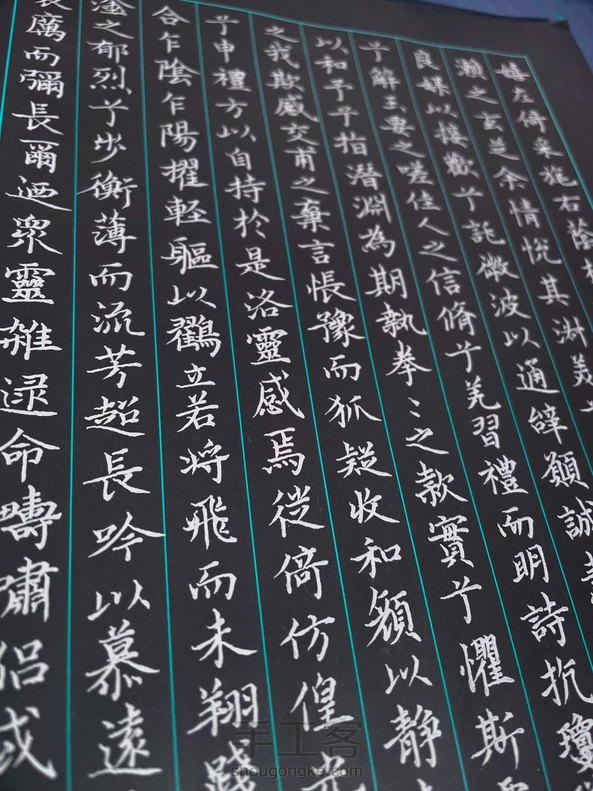 嬉左倚采旄右蔭
瀨之玄芝余情悅其淑美
良媒以接歡兮託微波以通辝願誠
兮解玉要之嗟佳人之信脩兮羌習禮而明詩抗瓊
以和予兮指潛淵為期執拳〻之款實兮懼斯
之我欺感交甫之棄言悵豫而狐疑收和顏以靜
兮申禮方以自持於是洛靈感焉徙倚仿偟
合乍陰乍陽擢輕軀以鶴立若將飛而未翔踐
塗之郁烈兮步衡薄而流芳超長吟以慕遠
哀厲而彌長爾迺眾靈雜逯命疇嘯侶或
手工客
shougongke.com